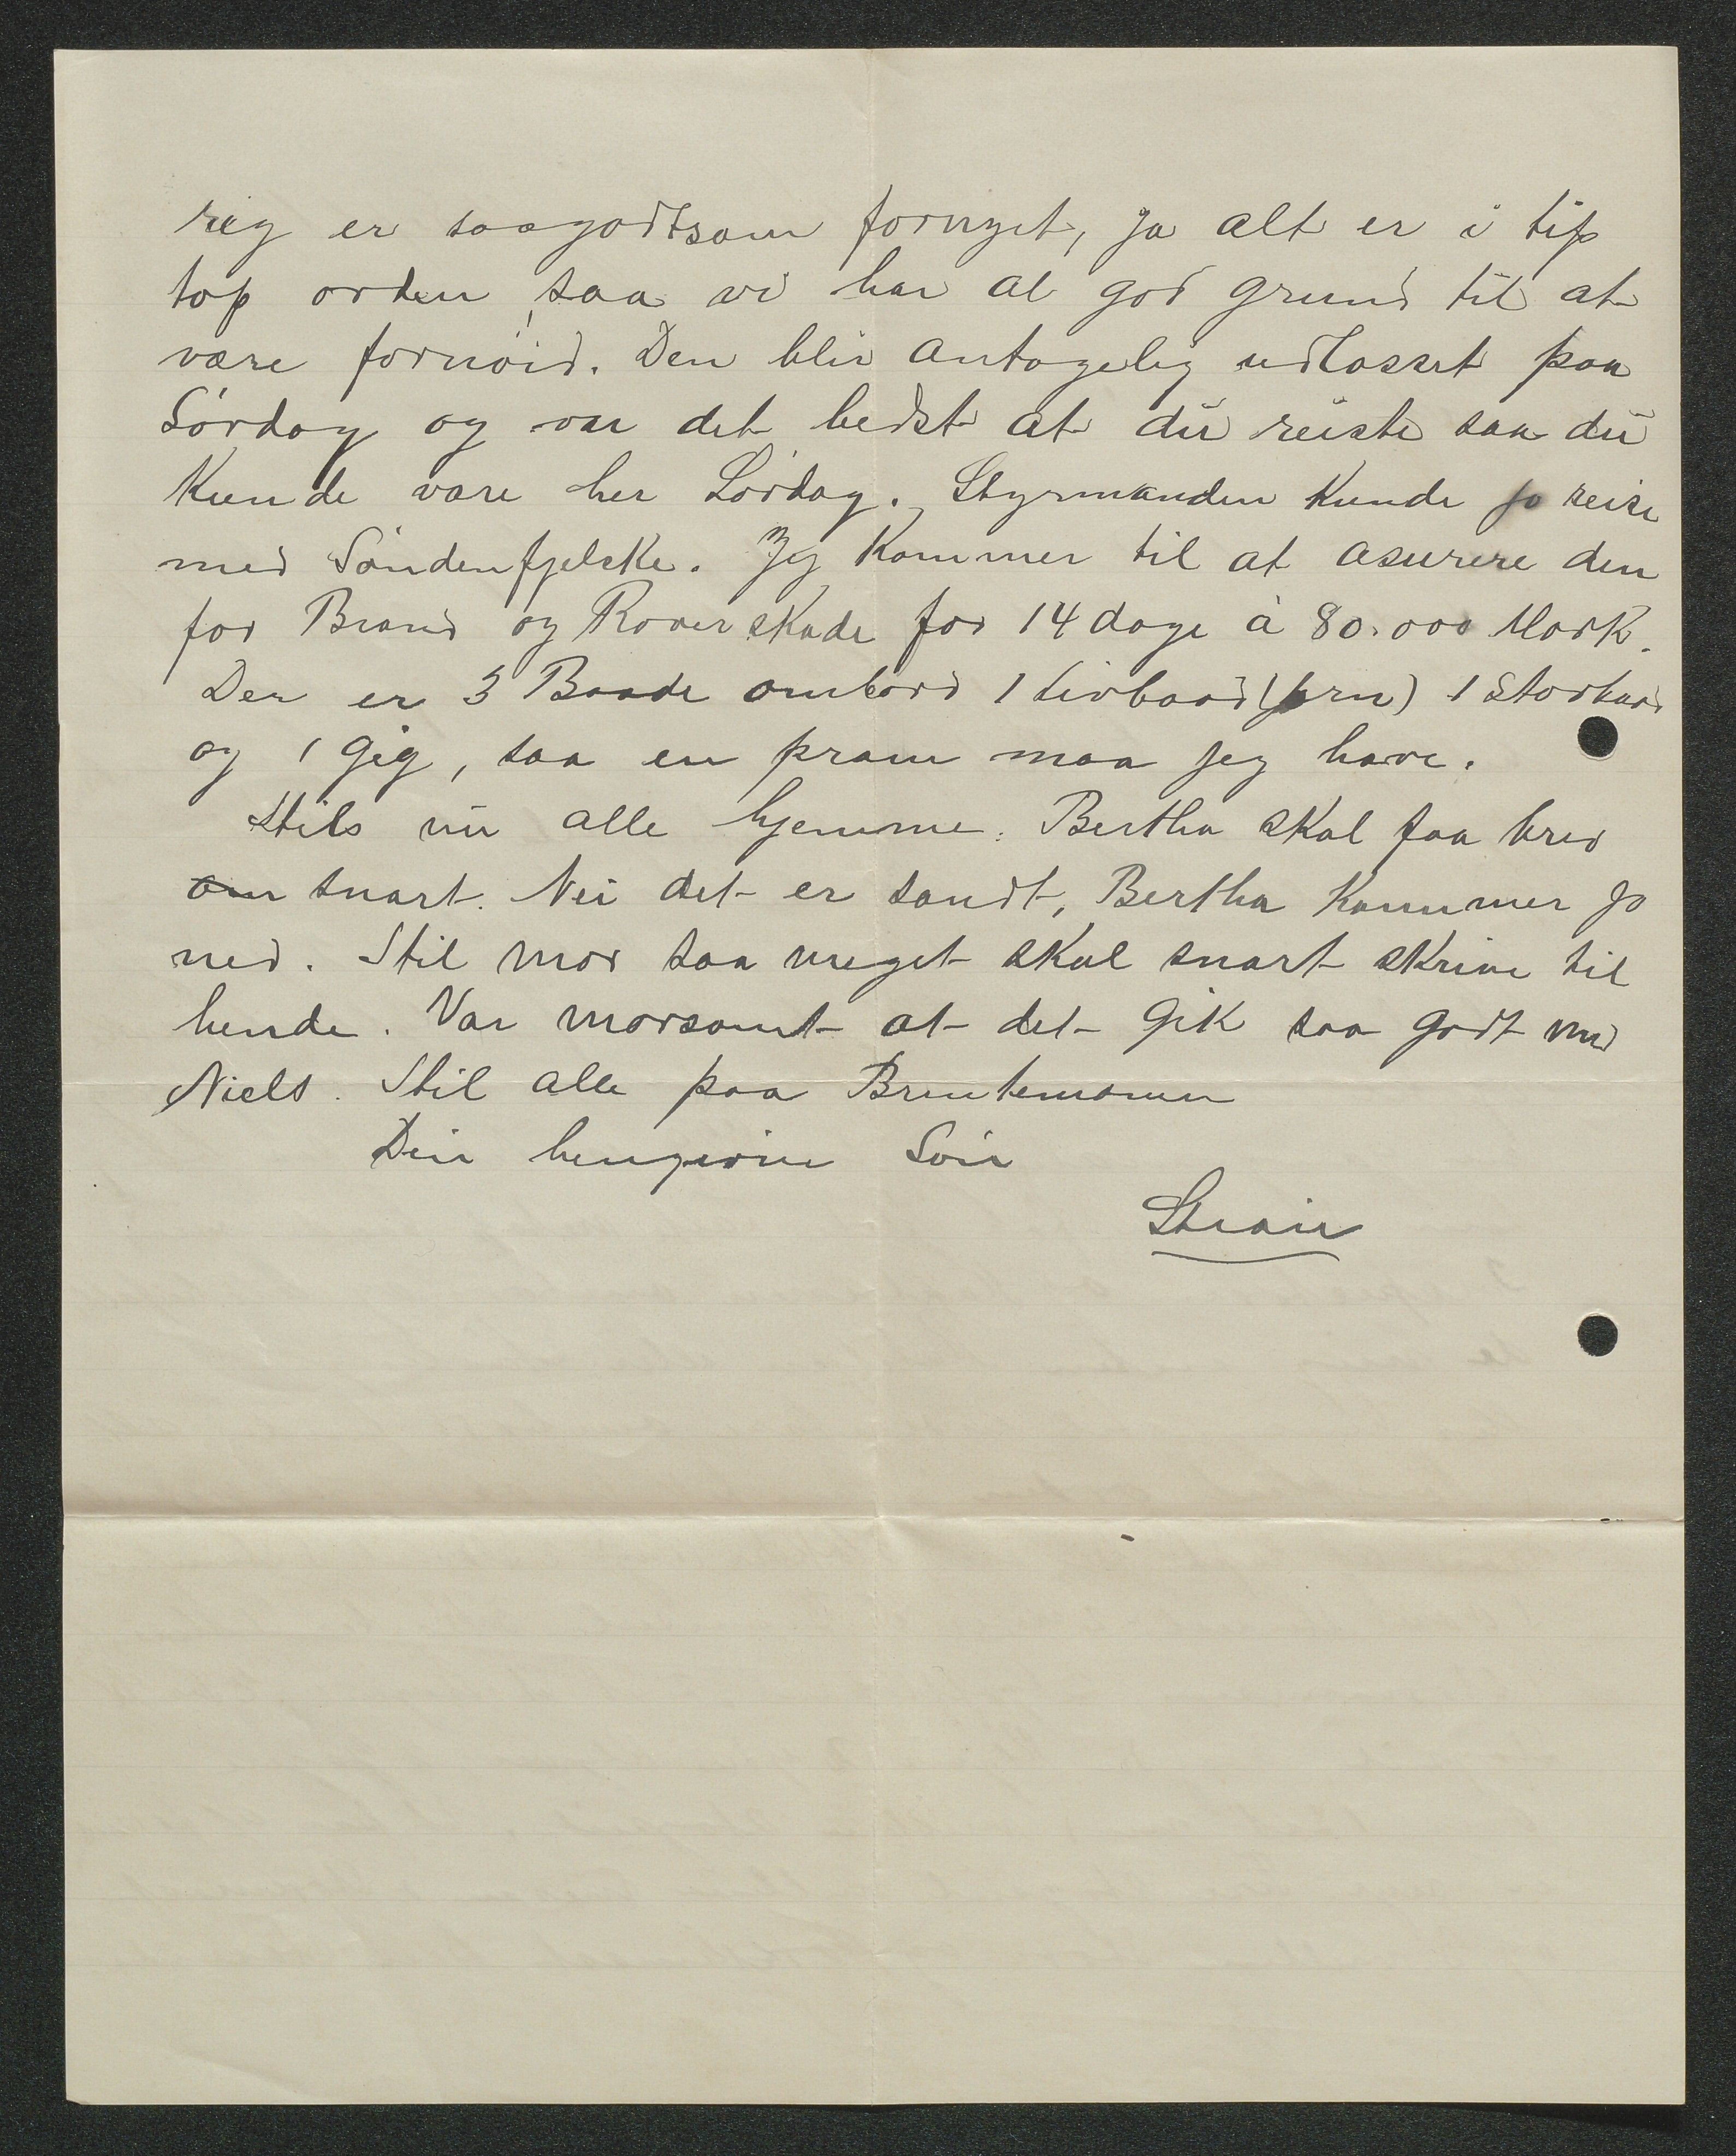 rig er saagodtsom fornyet, ja alt er i tip
top orden, saa vi har al god grund til at
være fornøid. Den blir antagelig udlosset paa
Lørdag og var det bedst at du reiste saa du
kunde være her Lørdag. Styrmanden kunde jo reise
med Søndenfjelske. Jeg kommer til at asurere den
for Brand og Rover skade for 14 dage à 80.000 Mark.
Der er 3 Baade ombord 1 Livbaad 1 Storbaad
og 1 Gig, saa en pram maa jeg have.
Hils nu alle hjemme. Bertha skal faa brev
om snart. Nei det er sandt, Bertha kommer jo
ned. Hil mor saa meget skal snart skrive til
hende. Var morsomt at det gik saa godt med
Niels. Hil alle paa
Din hengivne Søn